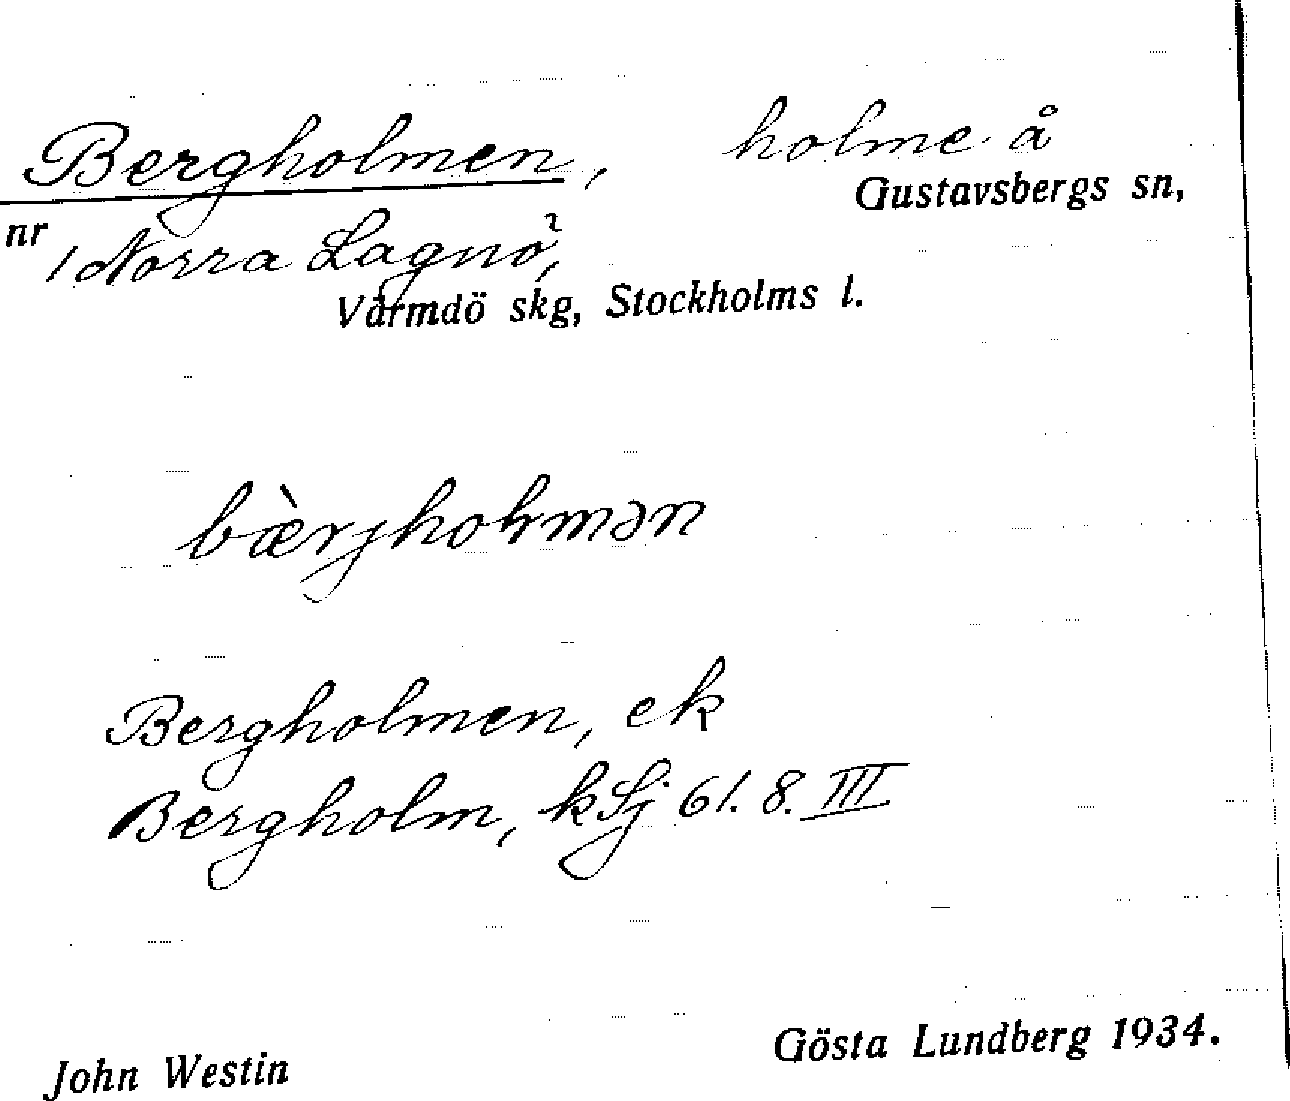 Bergholmen, holme å
Gustavsbergs sn,
nr 1 Norra Lagnö,
Värmdö skg, Stockholms l.
bæ̀rjholmən
Bergholmen, ek
Bergholm, kSj 61. 8. III
John Westin Gösta Lundberg 1934.